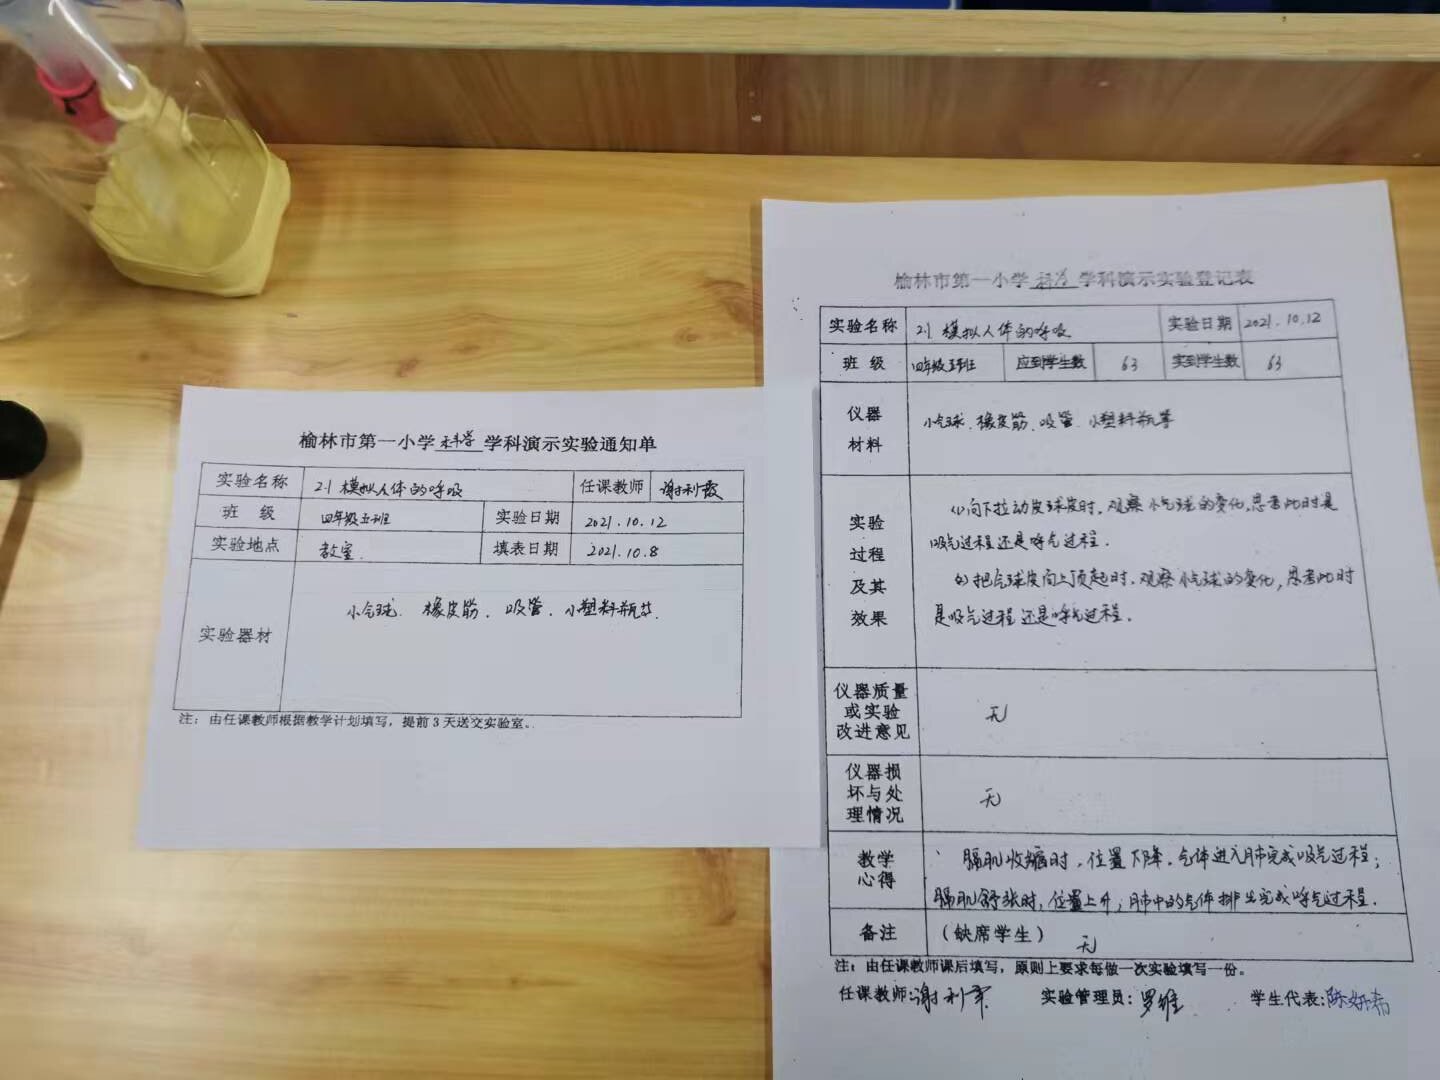 榆林市第一小学科学学科演示实验通知单
实验名称 2.1 模拟人体的呼吸 任课教师 谢利霞
班 级 四年级五班 实验日期 2021.10.12
实验地点 教室 填表日期 2021.10.8
实验器材 小气球、橡皮筋、吸管、小塑料瓶等.
注：由任课教师根据教学计划填写，提前3天送交实验室。
榆林市第一小学科学学科演示实验登记表
实验名称 2.1 模拟人体的呼吸 实验日期 2021.10.12
班 级 四年级五班 应到学生数 63 实到学生数 63
仪器
材料
小气球、橡皮筋、吸管、小塑料瓶等
实验
过程
及其
效果
(1)向下拉动皮球皮时，观察小气球的变化，思考此时是
吸气过程还是呼气过程.
(2)把气球皮向上顶起时，观察小气球的变化，思考此时
是吸气过程还是呼气过程.
仪器质量
或实验
改进意见
无
仪器损
坏与处
理情况
无
教学
心得
膈肌收缩时，位置下降，气体进入肺完成吸气过程；
膈肌舒张时，位置上升，肺中的气体排出完成呼气过程.
备注 （缺席学生） 无
注：由任课教师课后填写，原则上要求每做一次实验填写一份。
任课教师:谢利 实验管理员：罗维 学生代表:陈妍希